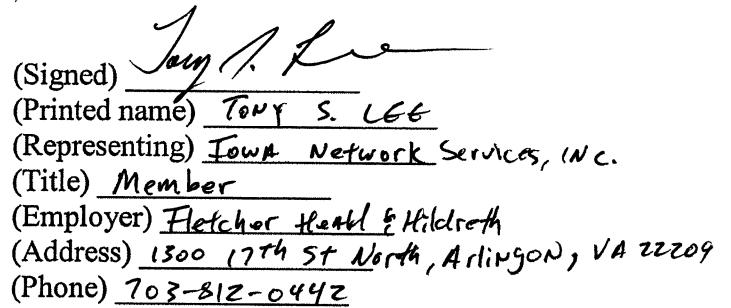 (Signed) Tony S. Lee
(Printed name) TONY S. LEE
(Representing) IOWA Network Services, INC.
(Title) Member
(Employer) Fletcher Heald & Hildreth
(Address) 1300 17th St North, ArliNgoN, VA 22209
(Phone) 703-812-0442